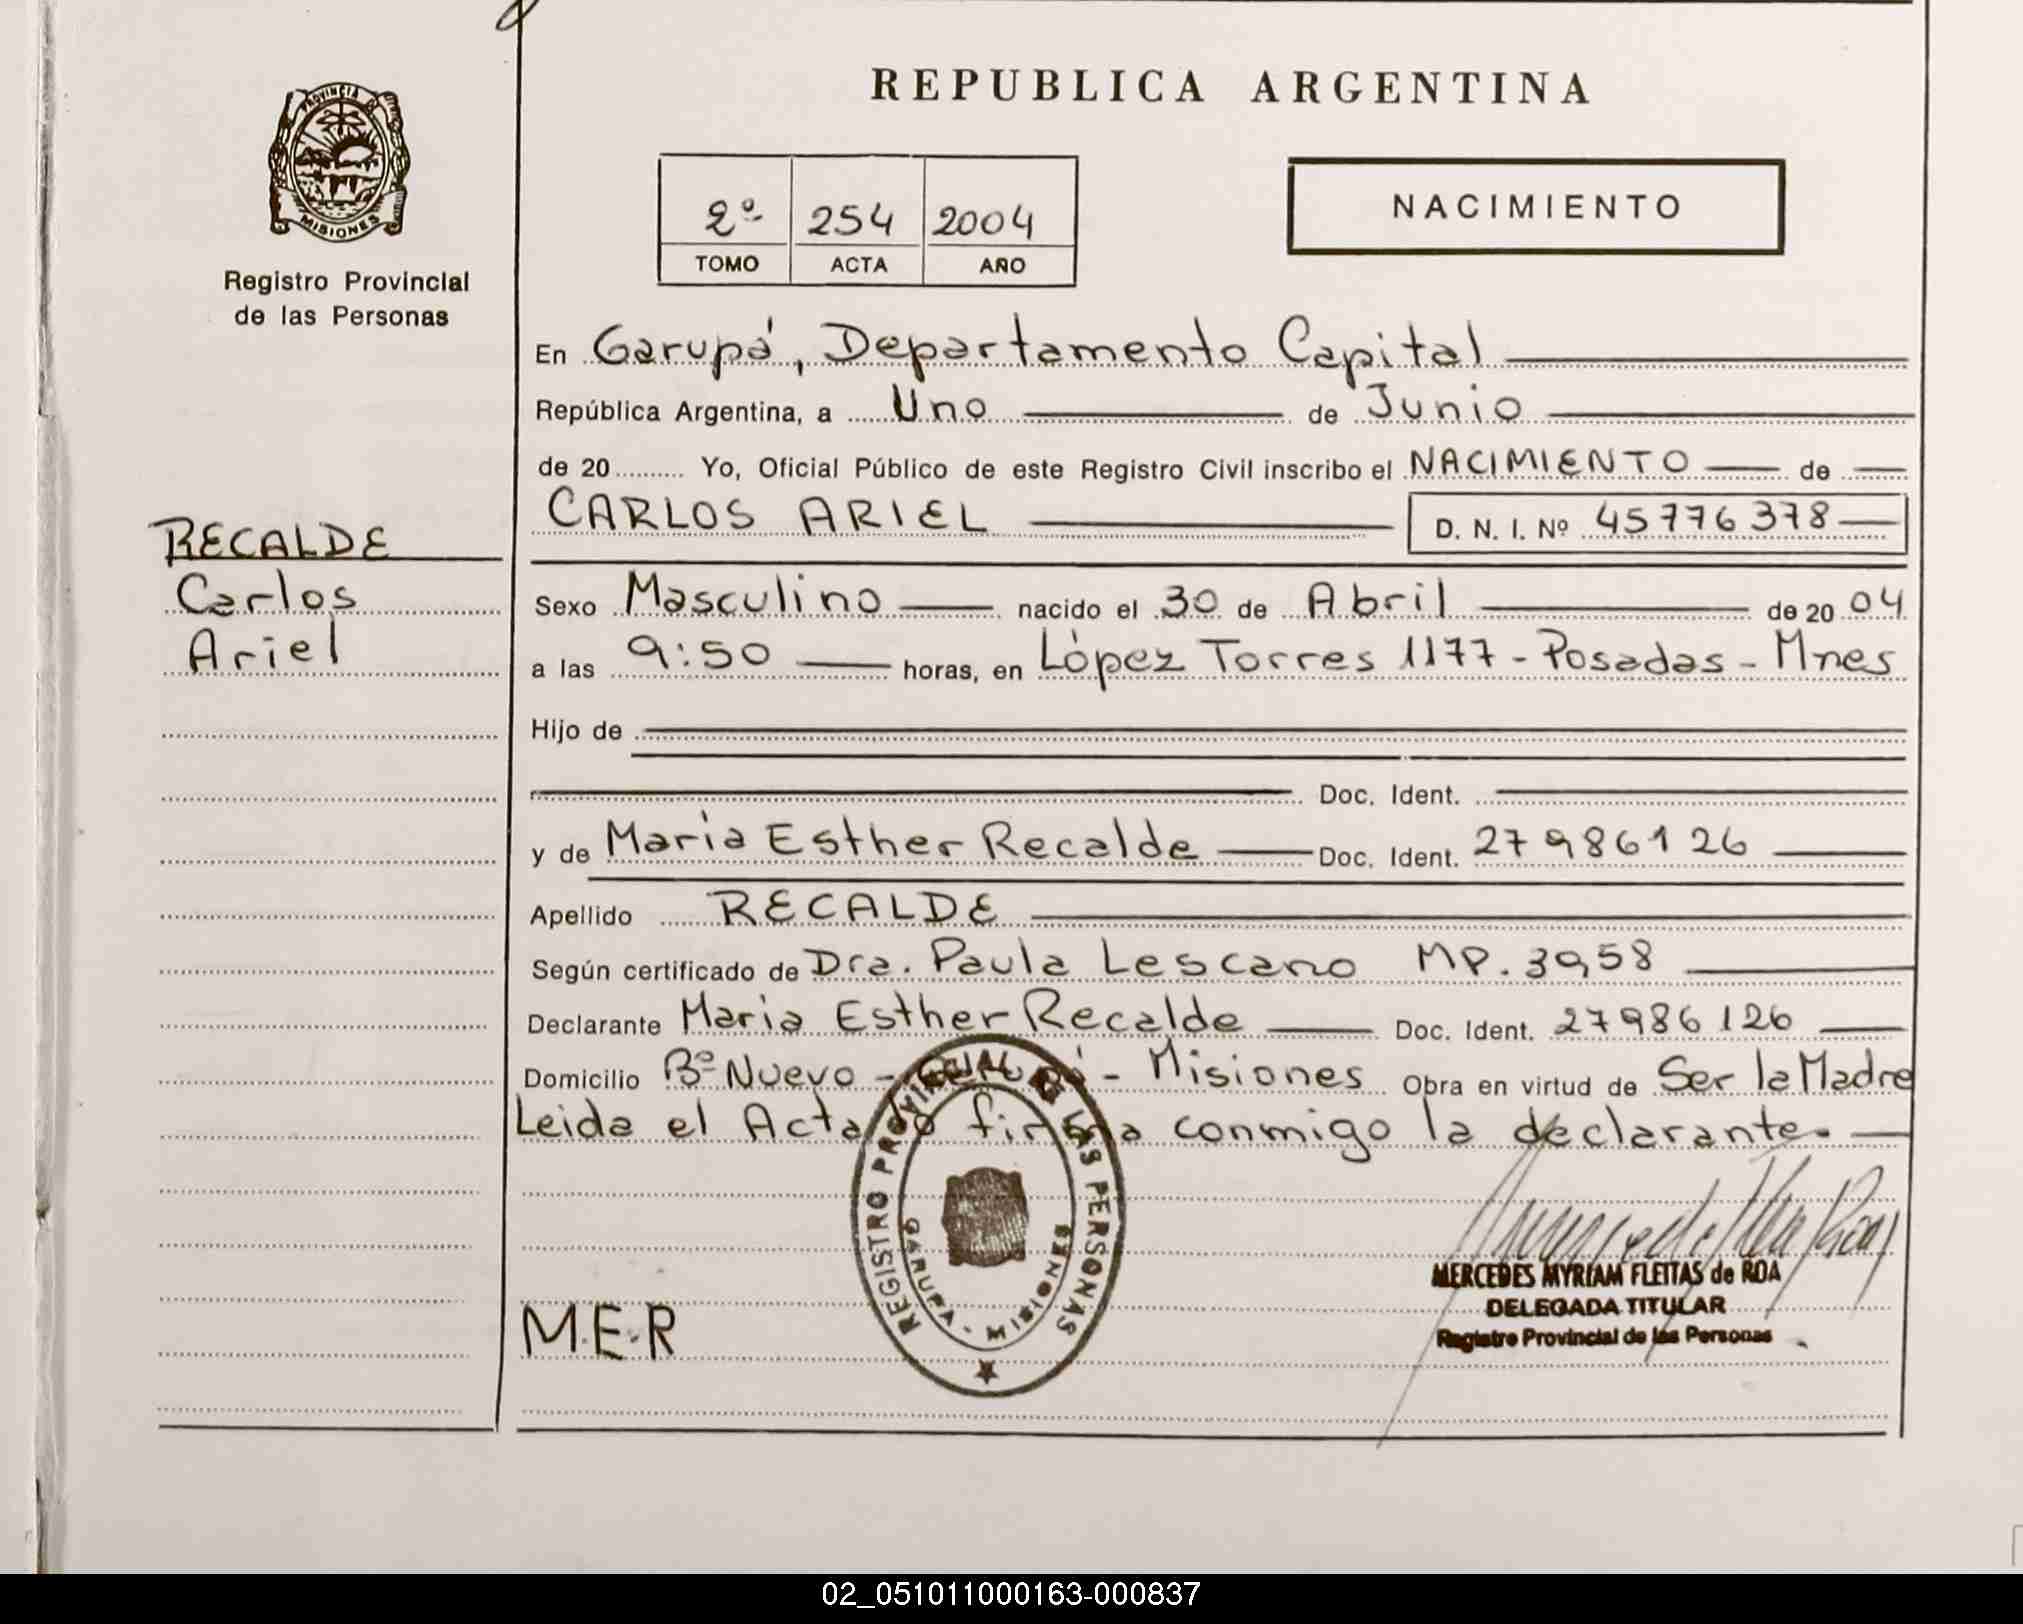 REPUBLICA ARGENTINA
PROVINCIA DE
MISIONES
Registro Provincial
de las Personas
2º 254 2004
TOMO ACTA AÑO
NACIMIENTO
En Garupá, Departamento Capital
República Argentina, a Uno de Junio
de 20.......... Yo, Oficial Público de este Registro Civil inscribo el NACIMIENTO de
CARLOS ARIEL D. N. I. Nº 45776378
RECALDE
Carlos
Ariel
Sexo Masculino nacido el 30 de Abril de 2004
a las 9:50 horas, en López Torres 1177 - Posadas - Mnes
Hijo de
Doc. Ident.
y de Maria Esther Recalde Doc. Ident. 27986126
Apellido RECALDE
Según certificado de Dra. Paula Lescano MP. 3958
Declarante Maria Esther Recalde Doc. Ident. 27986126
Domicilio Bº Nuevo - Garupá - Misiones Obra en virtud de Ser la Madre
Leida el Acta la firma conmigo la declarante.
REGISTRO PROVINCIAL DE LAS PERSONAS
GARUPA - MISIONES
M.E.R
MERCEDES MYRIAM FLEITAS de ROA
DELEGADA TITULAR
Registro Provincial de las Personas
02_051011000163-000837